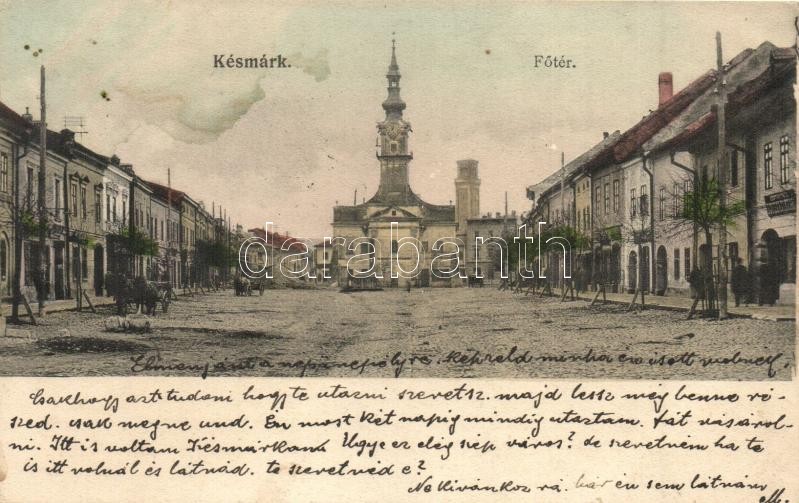 Késmárk.
Főtér.
darabanth
a nap
képzeld mintha én is ott volnék
Csakhogy azt tudom hogy te utazni szeretsz. majd lesz még benne ré-
szed. csak megne und. Én most két napig mindig utaztam. Fát vásárol-
ni. Itt is voltam Késmárkon Ugye ez elég szép város? de szeretném ha te
is itt volnál és látnád. te szeretnéd e?
Ne kívánkoz rá. bár én sem látnám